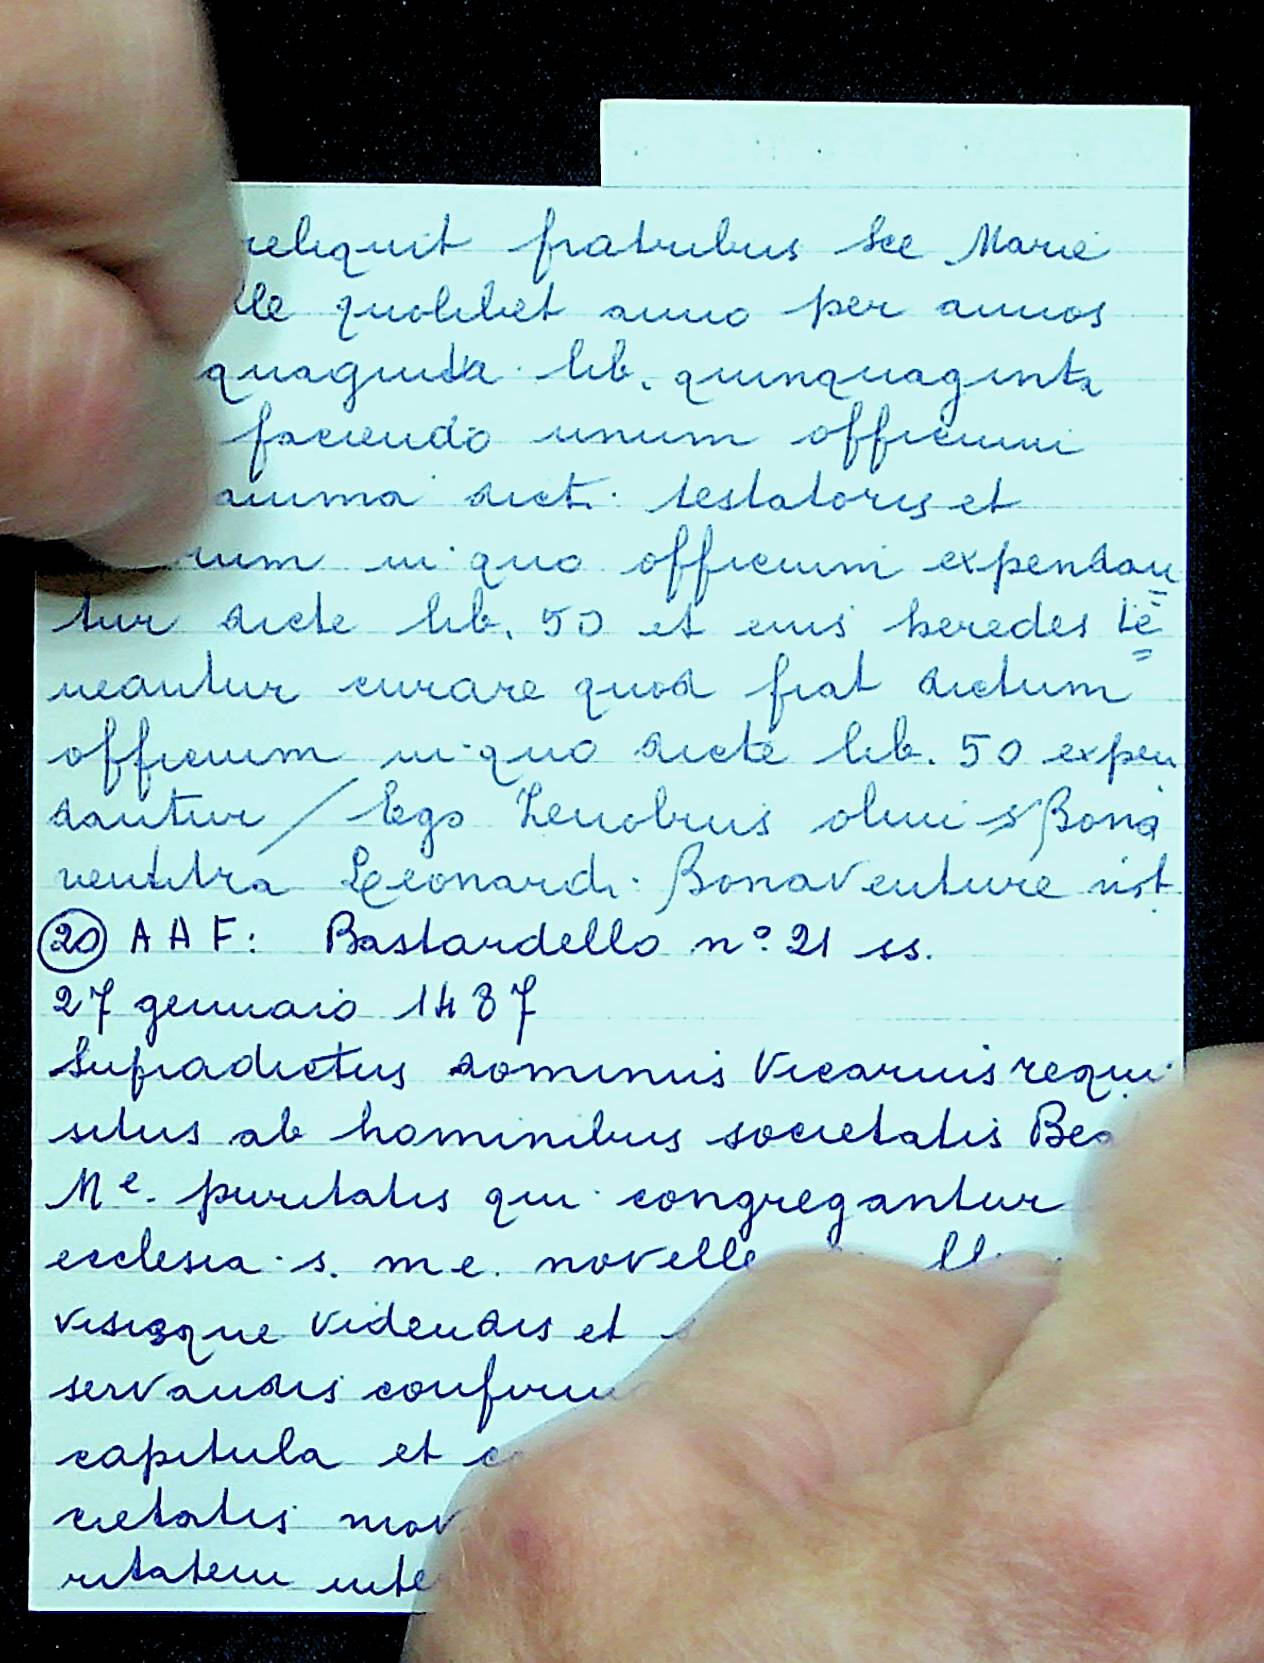 reliquit fratribus Sce Marie
quolibet anno per annos
quaginta lib. quinquaginta
faciendo unum officium
anima dict. testatoris et
in quo officium expendan
tur dicte lib. 50 et eius heredes te
neantur curare quod fiat dictum
officium in quo dicte lib. 50 expen
dantur / Ego Zenobius olim s Bona
Leonardi Bonaventure not.
20 AAF: Bastardello n° 21 ss.
27 gennaio 1487
Supradictus dominus Vicarius requi
situs ab hominibus societatis
Me. puritatis qui congregantur
ecclesia s. me. novelle
visisque videndis et
servandis
capitula et
cietatis
ritatem